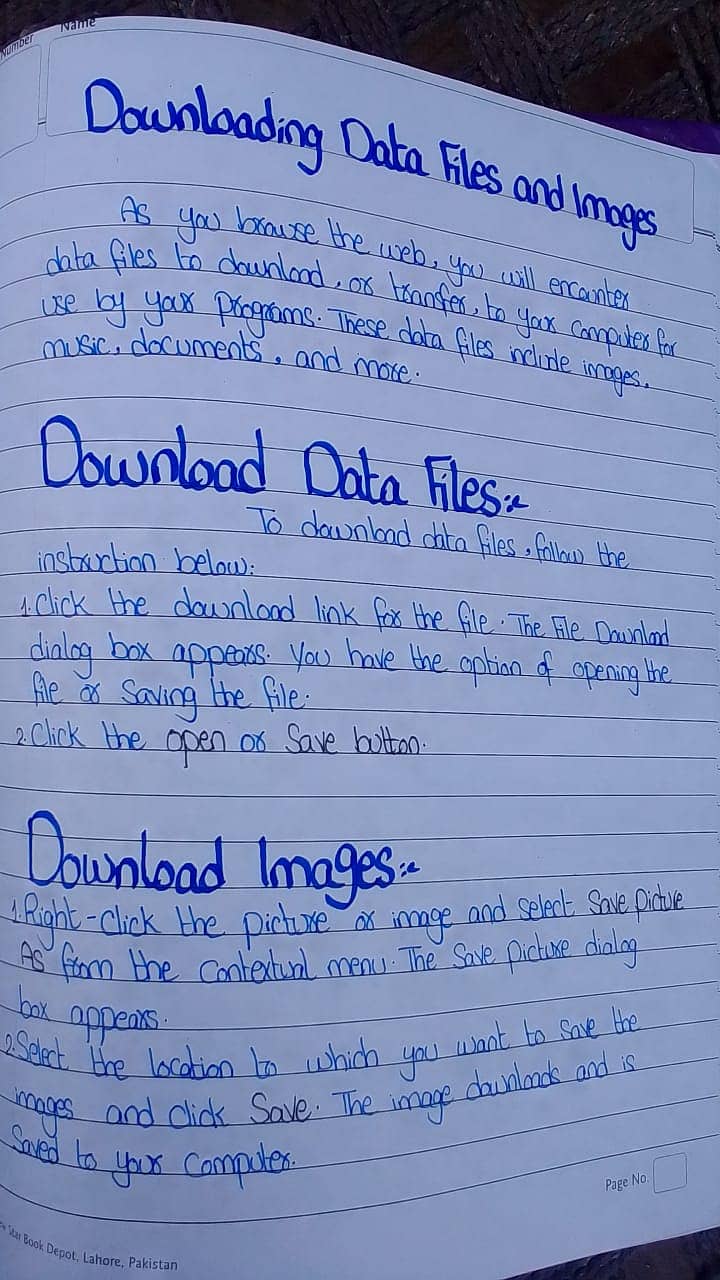 Number
Name
Downloading Data Files and Images
As you browse the web, you will encounter
data files to download, or tranfer, to your computer for
use by your programs. These data files include images,
music, documents, and more.
Download Data Files:-
To download data files, follow the
instruction below:
1. Click the download link for the file. The File Download
dialog box appears. You have the option of opening the
file or Saving the file.
2. Click the open or Save button.
Download Images:-
1. Right-click the picture or image and select Save Picture
As from the Contextual menu. The Save Picture dialog
box appears.
2. Select the location to which you want to Save the
images and click Save. The image downloads and is
Saved to your Computer.
Page No.
Star Book Depot, Lahore, Pakistan